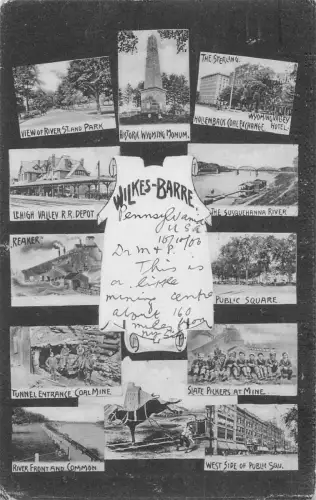 VIEW OF RIVER ST. AND PARK
HISTORIC WYOMING MONUM.
THE STERLING,
WYOMING VALLEY
HOLLENBACK COAL EXCHANGE, HOTEL.
LEHIGH VALLEY R.R. DEPOT
WILKES-BARRE
THE SUSQUEHANNA RIVER
Pennsylvania
USA
Dr M & P.
This is
a little
mining centre
about 160
miles from
BREAKER
PUBLIC SQUARE
TUNNEL ENTRANCE COAL MINE
SLATE PICKERS AT MINE.
RIVER FRONT AND COMMON
WEST SIDE OF PUBLIC SQU.